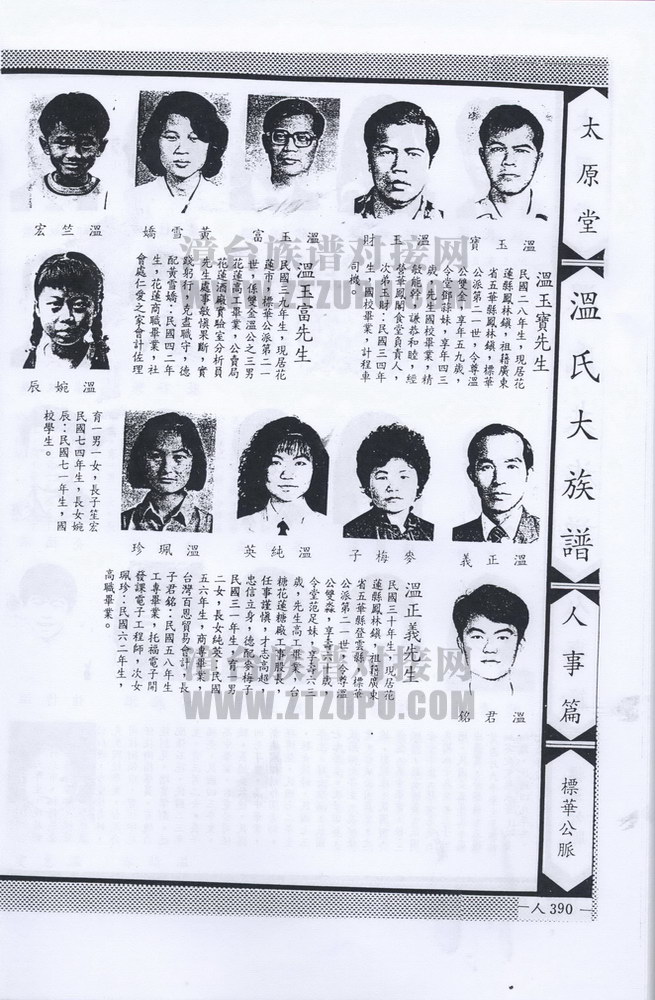 太原堂
溫氏大族譜
人事篇
標華公脈
溫玉寶
溫玉財
溫玉富
黃雪嬌
溫竺宏
溫玉寶先生
民國二八年生，現居花
蓮縣鳳林鎮，祖籍廣東
省五華縣鳳林鎮，標華
公派第二一世，令尊溫
公雙金，享年五九歲，
令堂鄧蒜妹，享年四三
歲，先生國校畢業，精
敏能幹，謙恭和睦，經
營華鳳閣食堂負責人，
次弟玉財：民國三四年
生，國校畢業，計程車
司機。
溫玉富先生
民國三九年生，現居花
蓮市，標華公派第二一
世，係雙金溫公之三男
，花蓮高工畢業，公賣局
花蓮酒廠實驗室分析員
，先生處事敏慎果斷，實
踐躬行，克盡職守，德
配黃雪嬌：民國四二年
生，花蓮商職畢業，社
會處仁愛之家會計佐理
溫婉辰
育一男一女，長子笙宏
民國七四年生，長女婉
辰：民國七一年生，國
校學生。
溫正義
麥梅子
溫純英
溫珮珍
溫正義先生
民國三十年生，現居花
蓮縣鳳林鎮，祖籍廣東
省五華縣登雲縣，標華
公派第二一世，令尊溫
公雙淼，享壽七一歲，
令堂范足妹，享壽六三
歲，先生高工畢業，台
糖花蓮糖廠工事股長，
任事謹慎，才志高超，
忠信立身，德配麥梅子
民國三一年生，育一男
二女，長女純英：民國
五六年生，商專畢業，
台灣百恩貿易會計，長
子君銘：民國五八年生
工專畢業，托福電子開
發課電子工程師，次女
珮珍：民國六二年生，
高職畢業。
溫君銘
人390
漳台族谱对接网
WWW.ZTZUPU.COM
漳台族谱对接网
WWW.ZTZUPU.COM